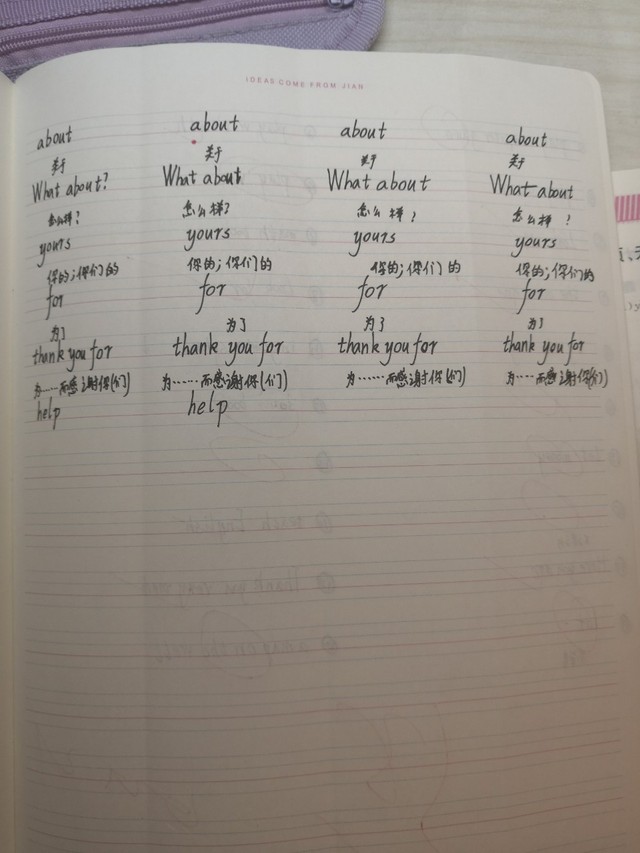 IDEAS COME FROM JIAN
about about about about
关于 关于 关于 关于
What about? What about What about What about
怎么样? 怎么样? 怎么样? 怎么样?
yours yours yours yours
你的;你们的 你的;你们的 你的;你们的 你的;你们的
for for for for
为了 为了 为了 为了
thank you for thank you for thank you for thank you for
为……而感谢你(们) 为……而感谢你(们) 为……而感谢你(们) 为……而感谢你(们)
help help